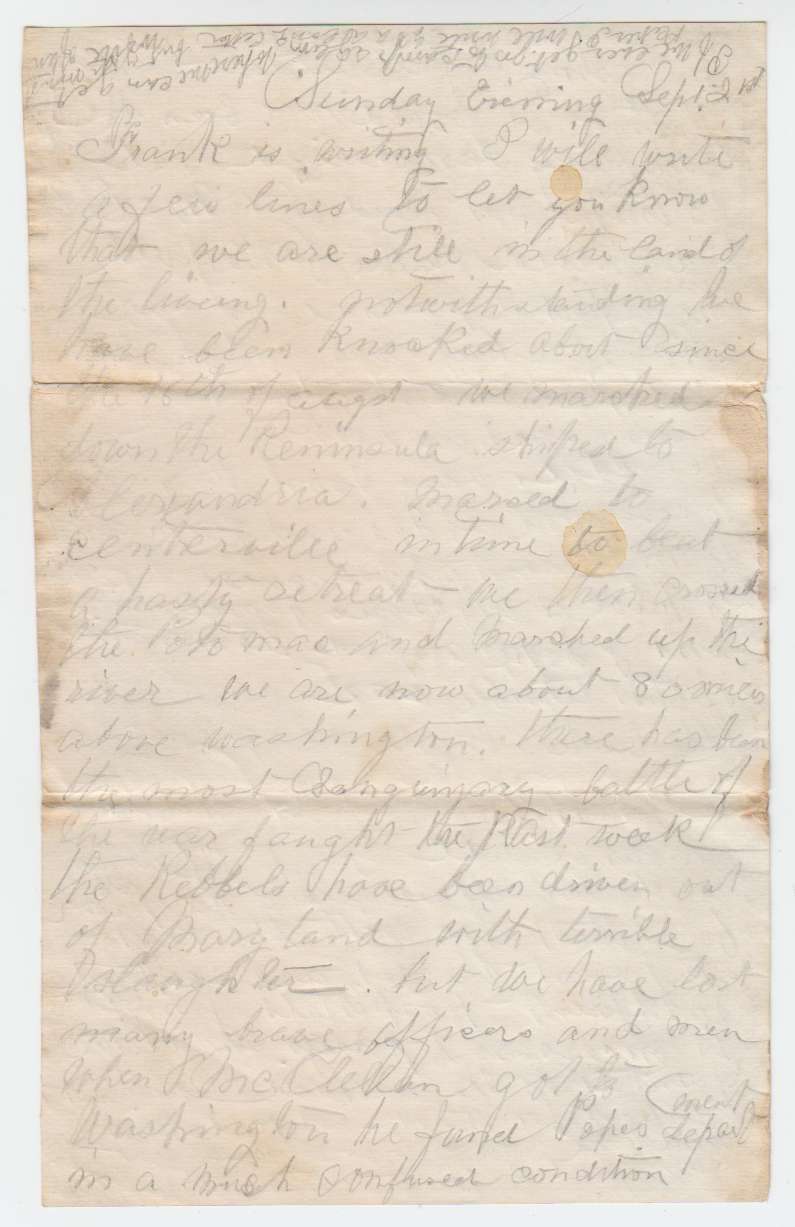 Sunday Evening Sept 21st
Frank is writing I will write
a few lines to let you know
that we are still in the land of
the liveing. notwithstanding we
have been Knocked about since
the 16th of augst we marched
down the Peninsula shiped to
Alexandria. Marsed to
Centerville in time to beat
a hasty retreat we then crossed
the Potomac and Marshed up the
river we are now about 30 miles
above washington. there has been
the most Sanguinary battle of
the war faught the Past week
the Rebbels have been driven out
of Maryland with terrible
Slaughter. but we have lost
many brave officers and men
when McClellan got to
Washington he fund Popes Depart
ment
in a much confused condition
P.S. we ever get to
where we can get